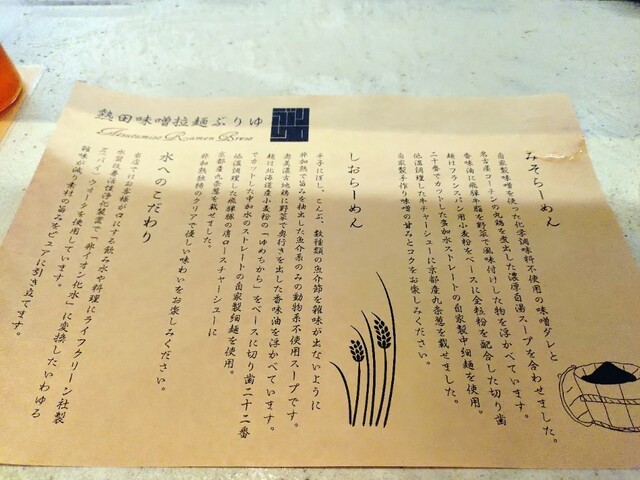 熱田味噌拉麺ぶりゆ
みそらーめん
自家製味噌を使った化学調味料不使用の味噌ダレと
名古屋コーチンの丸鶏を煮出した濃厚白湯スープを合わせました。
香味油に飛騨牛脂を野菜で風味付けした物を浮かべています。
麺はフランスパン用小麦粉をベースに全粒粉を配合した切り歯
二十番でカットした多加水ストレートの自家製中細麺を使用。
低温調理した牛チャーシューに京都産九条葱を載せました。
自家製手作り味噌の甘みとコクをお楽しみください。
しおらーめん
平子にぼし、こんぶ、数種類の魚介節を雑味が出ないように
非加熱で旨みを抽出した魚介系のみの動物系不使用スープです。
奥美濃古地鶏に野菜で奥行きを出した香味油を浮かべています。
麺は北海道産小麦粉の「ゆめちから」をベースに切り歯二十二番
でカットした中加水のストレートの自家製細麺を使用。
低温調理した飛騨豚の肩ロースチャーシューに
京都産九条葱を載せました。
非加熱独特のクリアで優しい味わいをお楽しみください。
水へのこだわり
当店ではお客様が口にする飲み水や料理にライフクリーン社製
水質改善活性浄化装置で「非イオン化水」に変換したいわゆる
「スパイン」ウォータを使用しています。
雑味が減り素材の旨みをピュアに引き立てます。